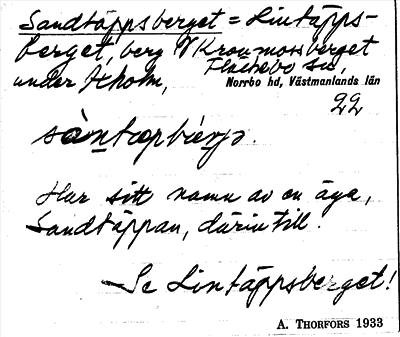 Sandtäppsberget = Lintäpps-
berget, berg V Kronmossberget
under Åholm, Fläckebo sn,
Norrbo hd, Västmanlands län
22
Har sitt namn av en äga,
Sandtäppan, därintill.
Se Lintäppsberget!
A. THORFORS 1933